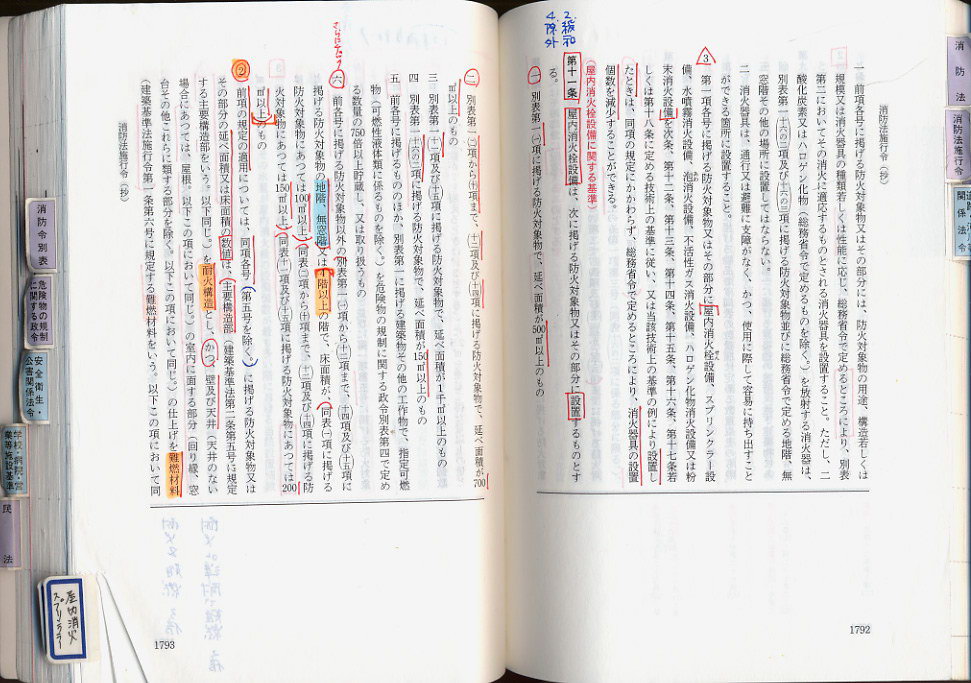 消防法施行令(抄)
一 前項各号に掲げる防火対象物又はその部分には、防火対象物の用途、構造若しくは
規模又は消火器具の種類若しくは性能に応じ、総務省令で定めるところにより、別表
第二においてその消火に適応するものとされる消火器具を設置すること。ただし、二
酸化炭素又はハロゲン化物(総務省令で定めるものを除く。)を放射する消火器は、
別表第一(十六の二)項及び(十六の三)項に掲げる防火対象物並びに総務省令で定める地階、無
窓階その他の場所に設置してはならない。
二 消火器具は、通行又は避難に支障がなく、かつ、使用に際して容易に持ち出すこと
ができる箇所に設置すること。
3 第一項各号に掲げる防火対象物又はその部分に屋内消火栓設備、スプリンクラー設
備、水噴霧消火設備、泡消火設備、不活性ガス消火設備、ハロゲン化物消火設備又は粉
末消火設備を次条、第十二条、第十三条、第十四条、第十五条、第十六条、第十七条若
しくは第十八条に定める技術上の基準に従い、又は当該技術上の基準の例により設置し
たときは、同項の規定にかかわらず、総務省令で定めるところにより、消火器具の設置
個数を減少することができる。
2.緩和
4.除外
(屋内消火栓設備に関する基準)
第十一条 屋内消火栓設備は、次に掲げる防火対象物又はその部分に設置するものとす
る。
一 別表第一(一)項に掲げる防火対象物で、延べ面積が500㎡以上のもの
1792
二 別表第一(二)項から(十)項まで、(十二)項及び(十四)項に掲げる防火対象物で、延べ面積が700
㎡以上のもの
三 別表第一(十一)項及び(十五)項に掲げる防火対象物で、延べ面積が1千㎡以上のもの
四 別表第一(十六の二)項に掲げる防火対象物で、延べ面積が150㎡以上のもの
五 前各号に掲げるもののほか、別表第一に掲げる建築物その他の工作物で、指定可燃
物(可燃性液体類に係るものを除く。)を危険物の規制に関する政令別表第四で定め
る数量の750倍以上貯蔵し、又は取り扱うもの
六 前各号に掲げる防火対象物以外の別表第一(一)項から(十二)項まで、(十四)項及び(十五)項に
掲げる防火対象物の地階、無窓階又は4階以上の階で、床面積が、同表(一)項に掲げる
防火対象物にあつては100㎡以上、同表(二)項から(十)項まで、(十二)項及び(十四)項に掲げる防
火対象物にあつては150㎡以上、同表(十一)項及び(十五)項に掲げる防火対象物にあつては200
㎡以上のもの
2 前項の規定の適用については、同項各号(第五号を除く。)に掲げる防火対象物又は
その部分の延べ面積又は床面積の数値は、主要構造部(建築基準法第二条第五号に規定
する主要構造部をいう。以下同じ。)を耐火構造とし、かつ、壁及び天井(天井のない
場合にあつては、屋根。以下この項において同じ。)の室内に面する部分(回り縁、窓
台その他これらに類する部分を除く。以下この項において同じ。)の仕上げを難燃材料
(建築基準法施行令第一条第六号に規定する難燃材料をいう。以下この項において同
消防法施行令(抄)
1793
消防法
消防法施行令
関係法令
消防令別表
危険物の規制
に関する政令
安全衛生・
公害関係法令
学校・病院・営
業等施設基準
民法
屋内消火
スプリンクラー